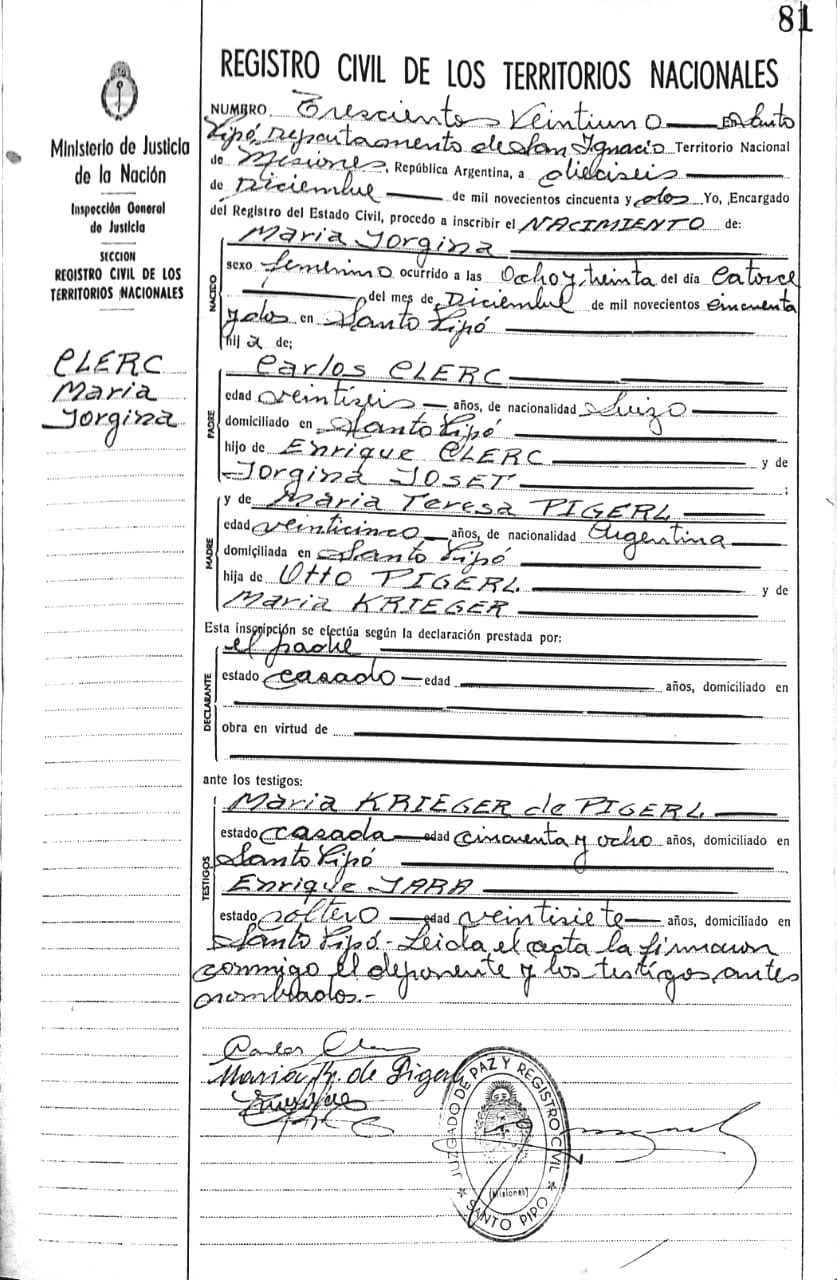 81
REGISTRO CIVIL DE LOS TERRITORIOS NACIONALES
Ministerio de Justicia
de la Nación
Inspección General
de Justicia
SECCION
REGISTRO CIVIL DE LOS
TERRITORIOS NACIONALES
CLERC
Maria
Jorgina
NUMERO Trescientos Veintiuno En Santo
Pipó, Departamento de San Ignacio Territorio Nacional
de Misiones, República Argentina, a dieciseis
de Diciembre de mil novecientos cincuenta y dos Yo, Encargado
del Registro del Estado Civil, procedo a inscribir el NACIMIENTO de:
NACIDO
Maria Jorgina
sexo femenino ocurrido a las Ocho y treinta del día Catorce
del mes de Diciembre de mil novecientos cincuenta
y dos en Santo Pipó
hij a de;
PADRE
Carlos CLERC
edad veintiseis años, de nacionalidad Suizo
domiciliado en Santo Pipó
hijo de Enrique CLERC y de
Jorgina JOSET ;
MADRE
y de Maria Teresa PIGERL
edad veinticinco años, de nacionalidad Argentina
domiciliada en Santo Pipó
hija de Otto PIGERL y de
Maria KRIEGER
Esta inscripción se efectúa según la declaración prestada por:
DECLARANTE
el padre
estado casado edad años, domiciliado en
obra en virtud de
ante los testigos:
TESTIGOS
Maria KRIEGER de PIGERL
estado casada edad cincuenta y ocho años, domiciliado en
Santo Pipó
Enrique JARA
estado soltero edad veintisiete años, domiciliado en
Santo Pipó - Leida el acta la firmaron
conmigo el deponente y los testigos antes
nombrados.-
Carlos Clerc
Maria K. de Pigerl
JUZGADO DE PAZ Y REGISTRO CIVIL
(Misiones)
SANTO PIPO